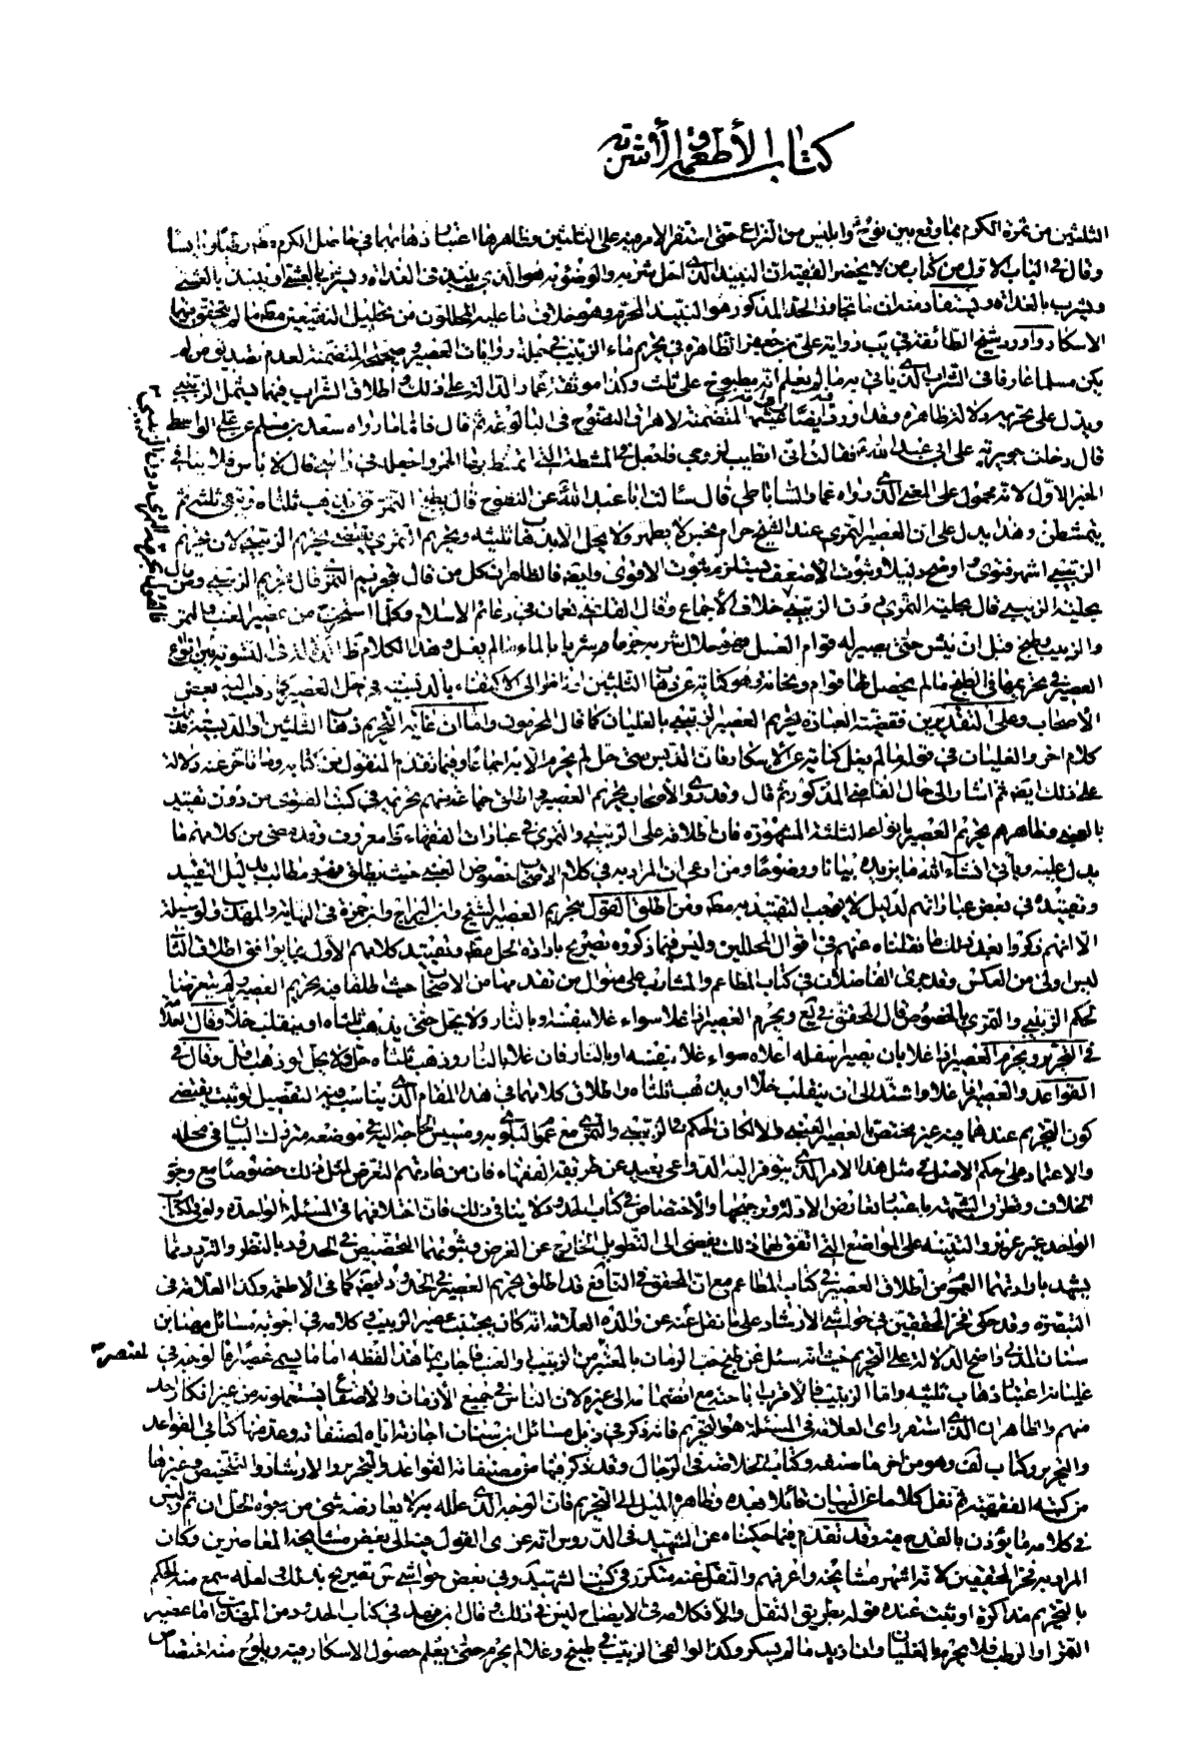 كتاب الأطعمة والأشربة
الثلثين من ثمرة الكرم بما وقع بين نوح وابليس من النزاع حتى استقر الامر فيه على الثلثين وظاهرها اعتبار ذهابهما في حاصل الكرم
وقال في الباب الاول من كتاب من لا يحضره الفقيه ان النبيذ الذي احل شربه والوضوء به هو الذي ينبذ في الغداة ويشرب بالعشي او ينبذ بالعشي
ويشرب بالغداة ويستفاد منه ان ما تجاوز الحد المذكور هو النبيذ المحرم وهو خلاف ما عليه المحللون من تحليل النقيعين مطلقا ما لم يتحقق فيهما
الاسكار واورد شيخ الطائفة في يب رواية علي بن جعفر الظاهرة في تحريم ماء الزبيب في جملة روايات العصير المتضمنة لعدم تصديق من لم
يكن مسلما عارفا في الشراب الذي ياتي به ما لم يعلم انه مطبوخ على ثلث وكذا موثقة عمار الدالة على ذلك واطلاق الشراب فيهما يشمل الزبيبي
ويدل على تحريمه دلالة ظاهرة وقد اورد ايضا المتضمنة لاهراق النضوح في البالوعة ثم قال فاما ما رواه سعد بن مسلم عن علي الواسطي
قال دخلت جويرية على ابي عبد الله فقالت اني اتطيب لزوجي فاجعل في المشطة التي امتشط بها الخمر واجعله في راسي قال لا باس فلا ينافي
الخبر الاول لانه محمول على المعنى الذي رواه عمار الساباطي قال سألت ابا عبد الله عن النضوح قال يطبخ التمر حتى يذهب ثلثاه ويبقى ثلثه ثم
يتمشطن وهذا يدل على ان العصير التمري عند الشيخ حرام نجس لا يطهر ولا يحل الا بذهاب ثلثيه وتحريم التمري يقتضي تحريم الزبيبي لان تحريم
الزبيبي اشهر فتوى واوضح دليلا وثبوت الاضعف يستلزم ثبوت الاقوى وايضا فالظاهر ان كل من قال بتحريم التمر قال بتحريم الزبيبي ومن قال
بحلية الزبيبي قال بحلية التمري دون الزبيبي خلاف الاجماع وقال القاضي نعمان في دعائم الاسلام وكلما استخرج من عصير العنب والتمر
والزبيب وطبخ قبل ان ينش حتى يصير له قوام العسل فهو حلال شربه صرفا وشربا بالماء ما لم يغل وهذا الكلام
العصير في تحريمها في الطبخ ما لم يحصل لها قوام وثخانة وهو كناية عن ذهاب الثلثين او الاكتفاء بالدبسية في حل العصير كما ذهب اليه بعض
الأصحاب وعلى التقديرين فقضية العبارة تحريم العصير الزبيبي بالغليان كما قال المحرمون واما ان غاية التحريم ذهاب الثلثين او الدبسية فذلك
كلام اخر والغليان في قوله ما لم يغل كناية عن الاسكار فان الدبس متى حل لم يحرم الا به اجماعا وفيما تقدم المنقول عن كتابه وما تاخر عنه دلالة
على ذلك ثم اشار الى حال القاضي المذكور ثم قال وقد روى الاصحاب تحريم العصير واطلق جماعة منهم تحريمه في كتب الفتوى من دون تقييد
بالعنبي وظاهرهم تحريم العصير بانواعه الثلثة المشهورة فان اطلاقه على الزبيبي والتمري في عبارات الفقهاء معروف وقد مضى من كلامهم ما
يدل عليه وياتي انشاء الله ما يزيده بيانا ووضوحا ومن ادعى ان المراد به في كلام الاصحاب خصوص العنبي حيث يطلق فهو مطالب بدليل التقييد
وتقييده في بعض عباراتهم لدليل لا يوجب التقييد به مطلقا وممن اطلق القول بتحريم العصير الشيخ وابن البراج وابن حمزة في النهاية والمهذب والوسيلة
الا انهم ذكروا بعد ذلك ما نقلناه عنهم في اقوال المحللين وليس فيما ذكروه تصريح بارادة الحل مطلقا وتقييد كلامهم الاول بما يوافق اطلاق الثاني
ليس باولى من العكس وقد جرى الفاضلان في كتاب المطاعم والمشارب على منوال من تقدمهما من الاصحاب حيث اطلقا فيه تحريم العصير ولم يتعرضا
لحكم الزبيبي والتمري بالخصوص قال المحقق في يع ويحرم العصير اذا غلا سواء غلا بنفسه او بالنار ولا يحل حتى يذهب ثلثاه او ينقلب خلا وقال العلامة
في التحرير ويحرم العصير اذا غلا بان يصير اسفله اعلاه سواء غلا بنفسه او بالنار فان غلا بالنار وذهب ثلثاه وقال في
القواعد والعصير اذا غلا واشتد الى ان ينقلب خلا او يذهب ثلثاه واطلاق كلامهما في هذا المقام الذي يناسب فيه التفصيل لو ثبت يقتضي
كون التحريم عندهما فيه غير مختص بالعصير العنبي والا لكان الحكم في الزبيبي والتمري مع عموم البلوى به ومسيس الحاجة اليه في موضعه متروك البيان في محله
والاعتماد على حكم الاصل في مثل هذا الامر الذي يتوفر اليه الدواعي بعيد عن طريقة الفقهاء فان من عادتهم التعرض لمثل ذلك خصوصا مع وجود
الخلاف وتطرق الشبهة باعتبار تعارض الادلة وترجيحها والاختصاص في كتاب الحدود لا ينافي ذلك فان اختلافهما في المسئلة الواحدة ولو في الكتاب
الواحد غير عزيز والتنبيه على المواضع التي اتفق لهما ذلك يفضي الى التطويل الخارج عن الغرض وشوبهما التخصيص في الحدود بالنظر والتردد مما
يشهد بارادتهما العموم من اطلاق العصير في كتاب المطاعم مع ان المحقق في النافع قد اطلق تحريم العصير في الحدود ايضا كما في الاطعمة وكذا العلامة في
التبصرة وقد حكى فخر المحققين في حواشي الارشاد على ما نقل عنه عن والده العلامة انه كان يجتنب عصير الزبيب وكلامه في اجوبة مسائل مهنا بن
سنان المدني واضح الدلالة على التحريم حيث انه سئل عن طبخ حب الرمان بالمعتبر من الزبيب والعنب فاجاب بما هذا لفظه اما ما يسمى عصيرا فالوجه في
غليانه اعتبار ذهاب ثلثيه واما الزبيب فالاقرب اباحته مع انضمامه الى غيره لان الناس في جميع الازمان والاصقاع يستعملونه من غير انكار احد
منهم والظاهر ان الذي استقر راي العلامة في المسئلة هو التحريم فانه ذكر في ذيل مسائل ابن سنان اجازته اياه لمصنفاته وعد منها كتابي القواعد
والتحرير وكتاب لف وهو من اخر ما صنفه وكتاب الخلاصة في الرجال وقد ذكر فيها من مصنفاته القواعد والتحرير والارشاد والتلخيص وغيرها
من كتبه الفقهية ثم نقل كلاما عن البيان قائلا بعده وظاهره الميل الى التحريم فان الوجه الذي علله به لا يعارضه شيء من وجوه الحل ان تم وليس
في كلامه ما يؤذن بالقدح فيه وقد تقدم فيما حكيناه عن الشهيد في الدروس انه عزى القول فيه الى بعض مشايخه المعاصرين وكان
المراد به فخر المحققين لانه اشهر مشايخه واعرفهم والنقل عنه متكرر في كتب الشهيد وفي بعض حواشيه تصريح بذلك فلعله سمع منه الحكم
بالتحريم مذاكرة او ثبت عنده قوله بطريق النقل والا فكلامه في الايضاح ليس في ذلك وقال ابن فهد في كتاب الحدود من المهذب اما عصير
التمر او الرطب فلا يحرم بالغليان وان زبد ما لم يسكر وكذا لو القي الزبيب في طبيخ وغلا لم يحرم حتى يعلم حصول الاسكار فيه ويلوح منه اختصاص